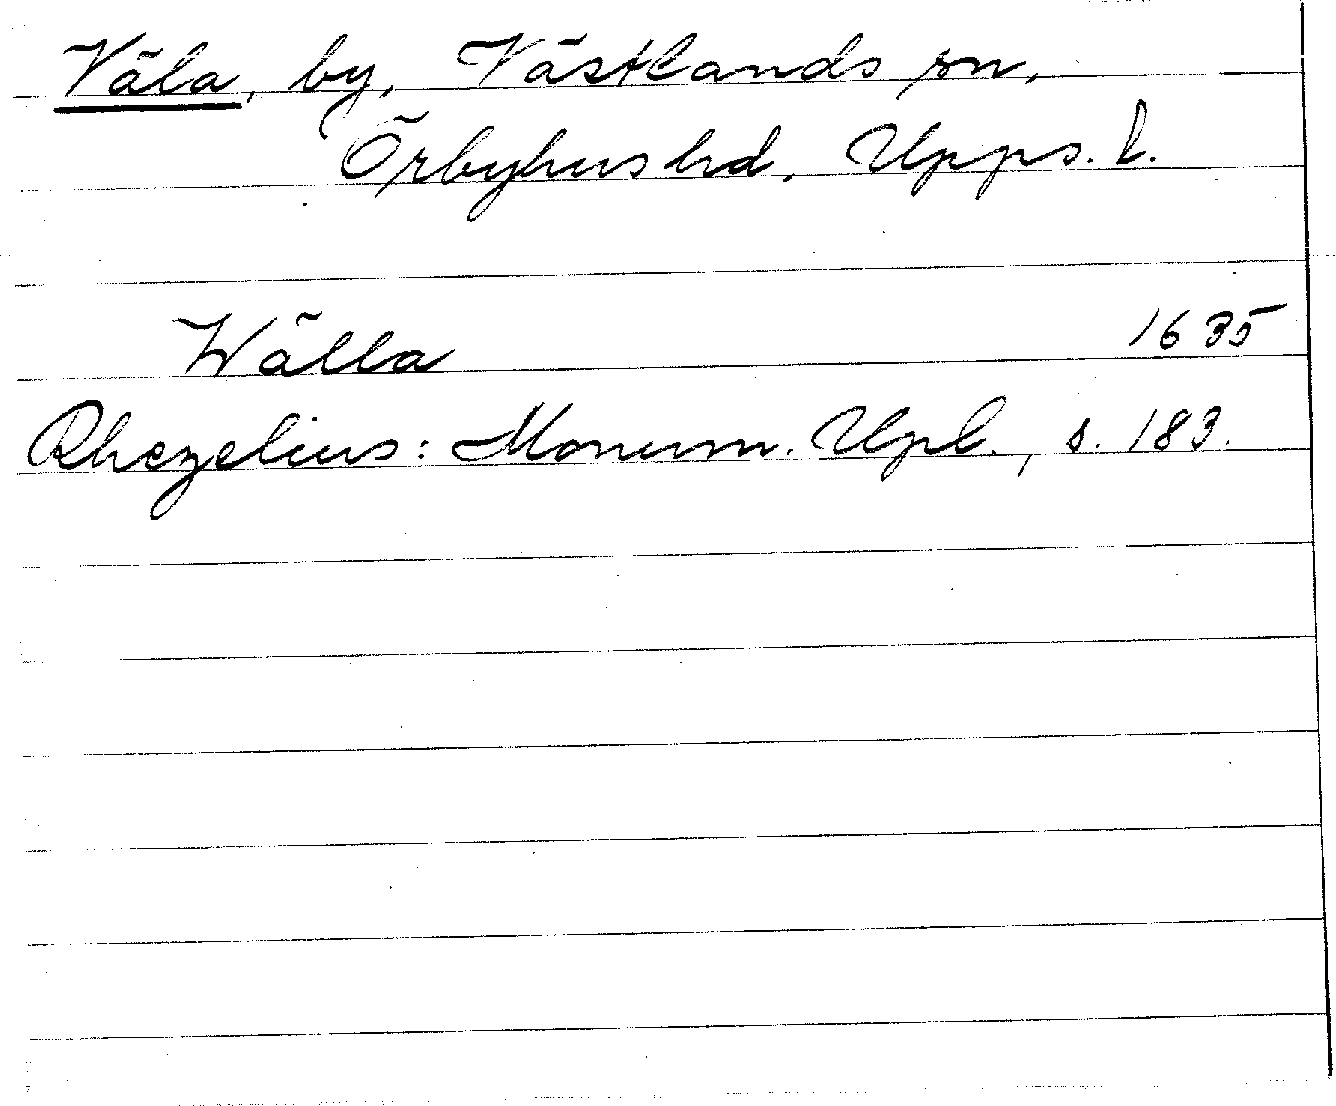 Väla, by, Västlands sn,
Örbyhus hd, Upps. l.
Wälla 1635
Rhezelius: Monum. Upl., s. 183.